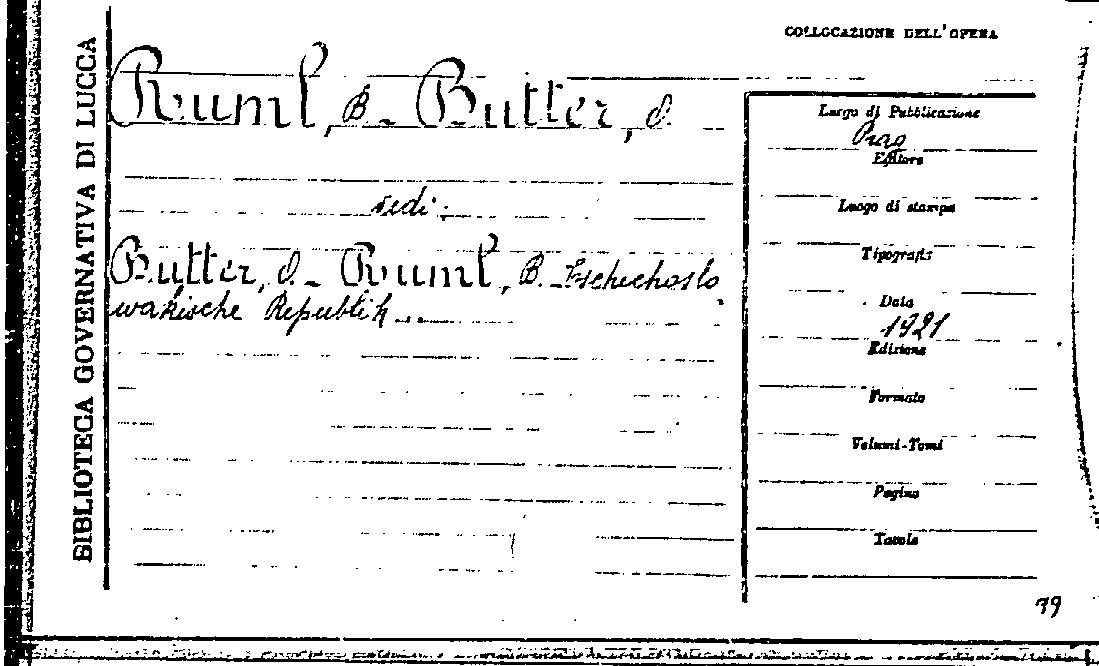 BIBLIOTECA GOVERNATIVA DI LUCCA
COLLOCAZIONE DELL'OPERA
Ruml, B. - Butter, O.
vedi:
Butter, O. - Ruml, B. - Tschechoslo
wakische Republik...
Luogo di Pubblicazione
Prag
Editore
Luogo di stampa
Tipografia
Data
1921
Edizione
Formato
Volumi-Tomi
Pagine
Tavole
79